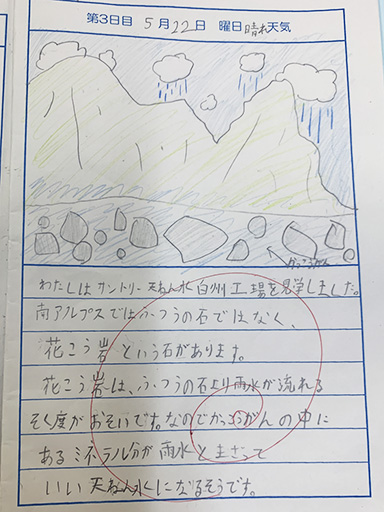 第3日目 5月22日 曜日 晴れ 天気
かっこうがん
わたしはサントリー天ねん水白州工場を見学しました。
南アルプスではふつうの石ではなく、
花こう岩という石があります。
花こう岩は、ふつうの石より雨水が流れる
そく度がおそいです。なのでかっこうがんの中に
あるミネラル分が雨水とまざって
いい天ねん水になるそうです。